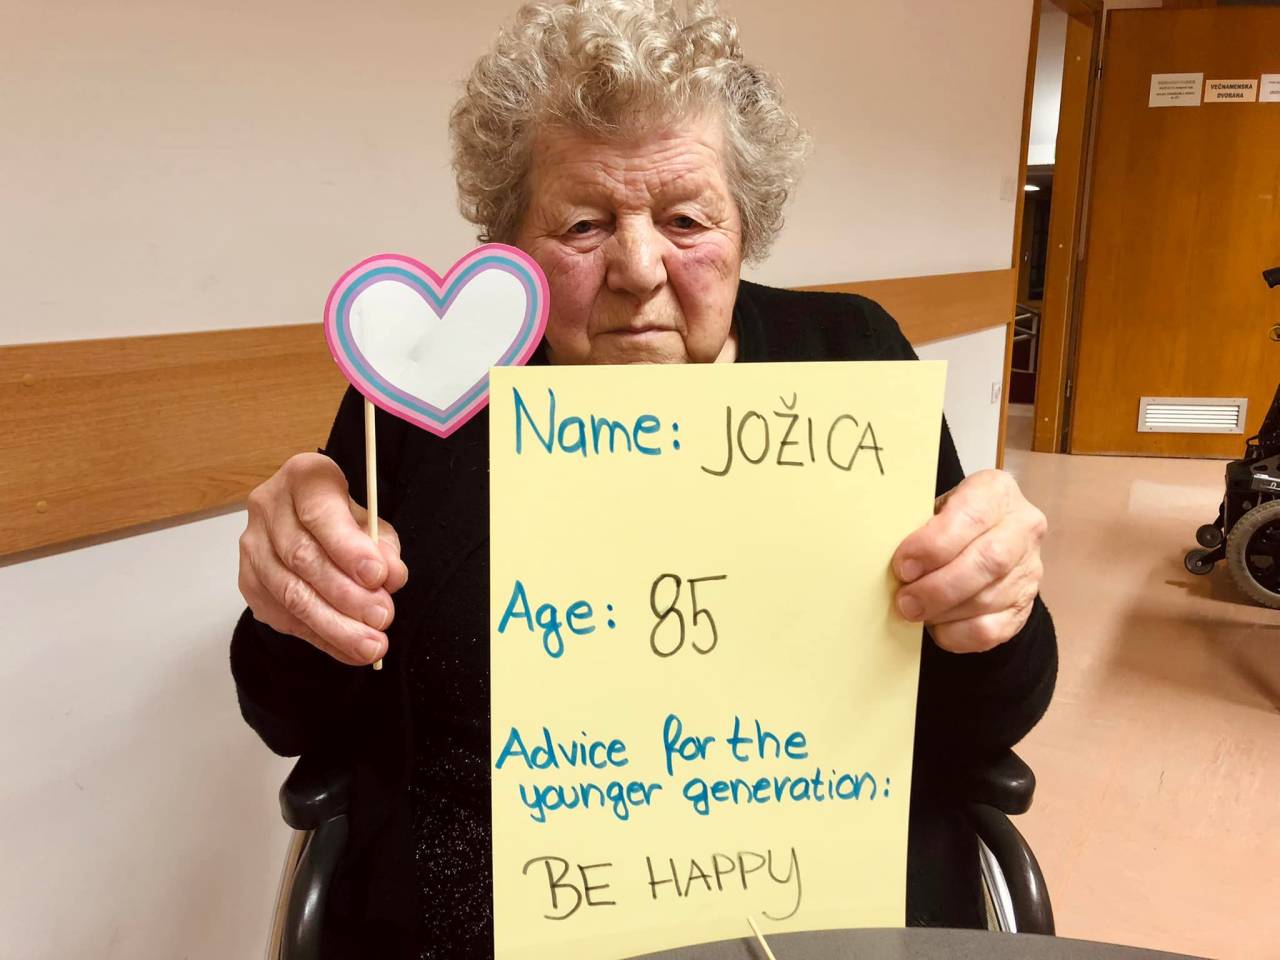 Name: JOŽICA
Age: 85
Advice for the
younger generation:
BE HAPPY
VEČNAMENSKA
DVORANA